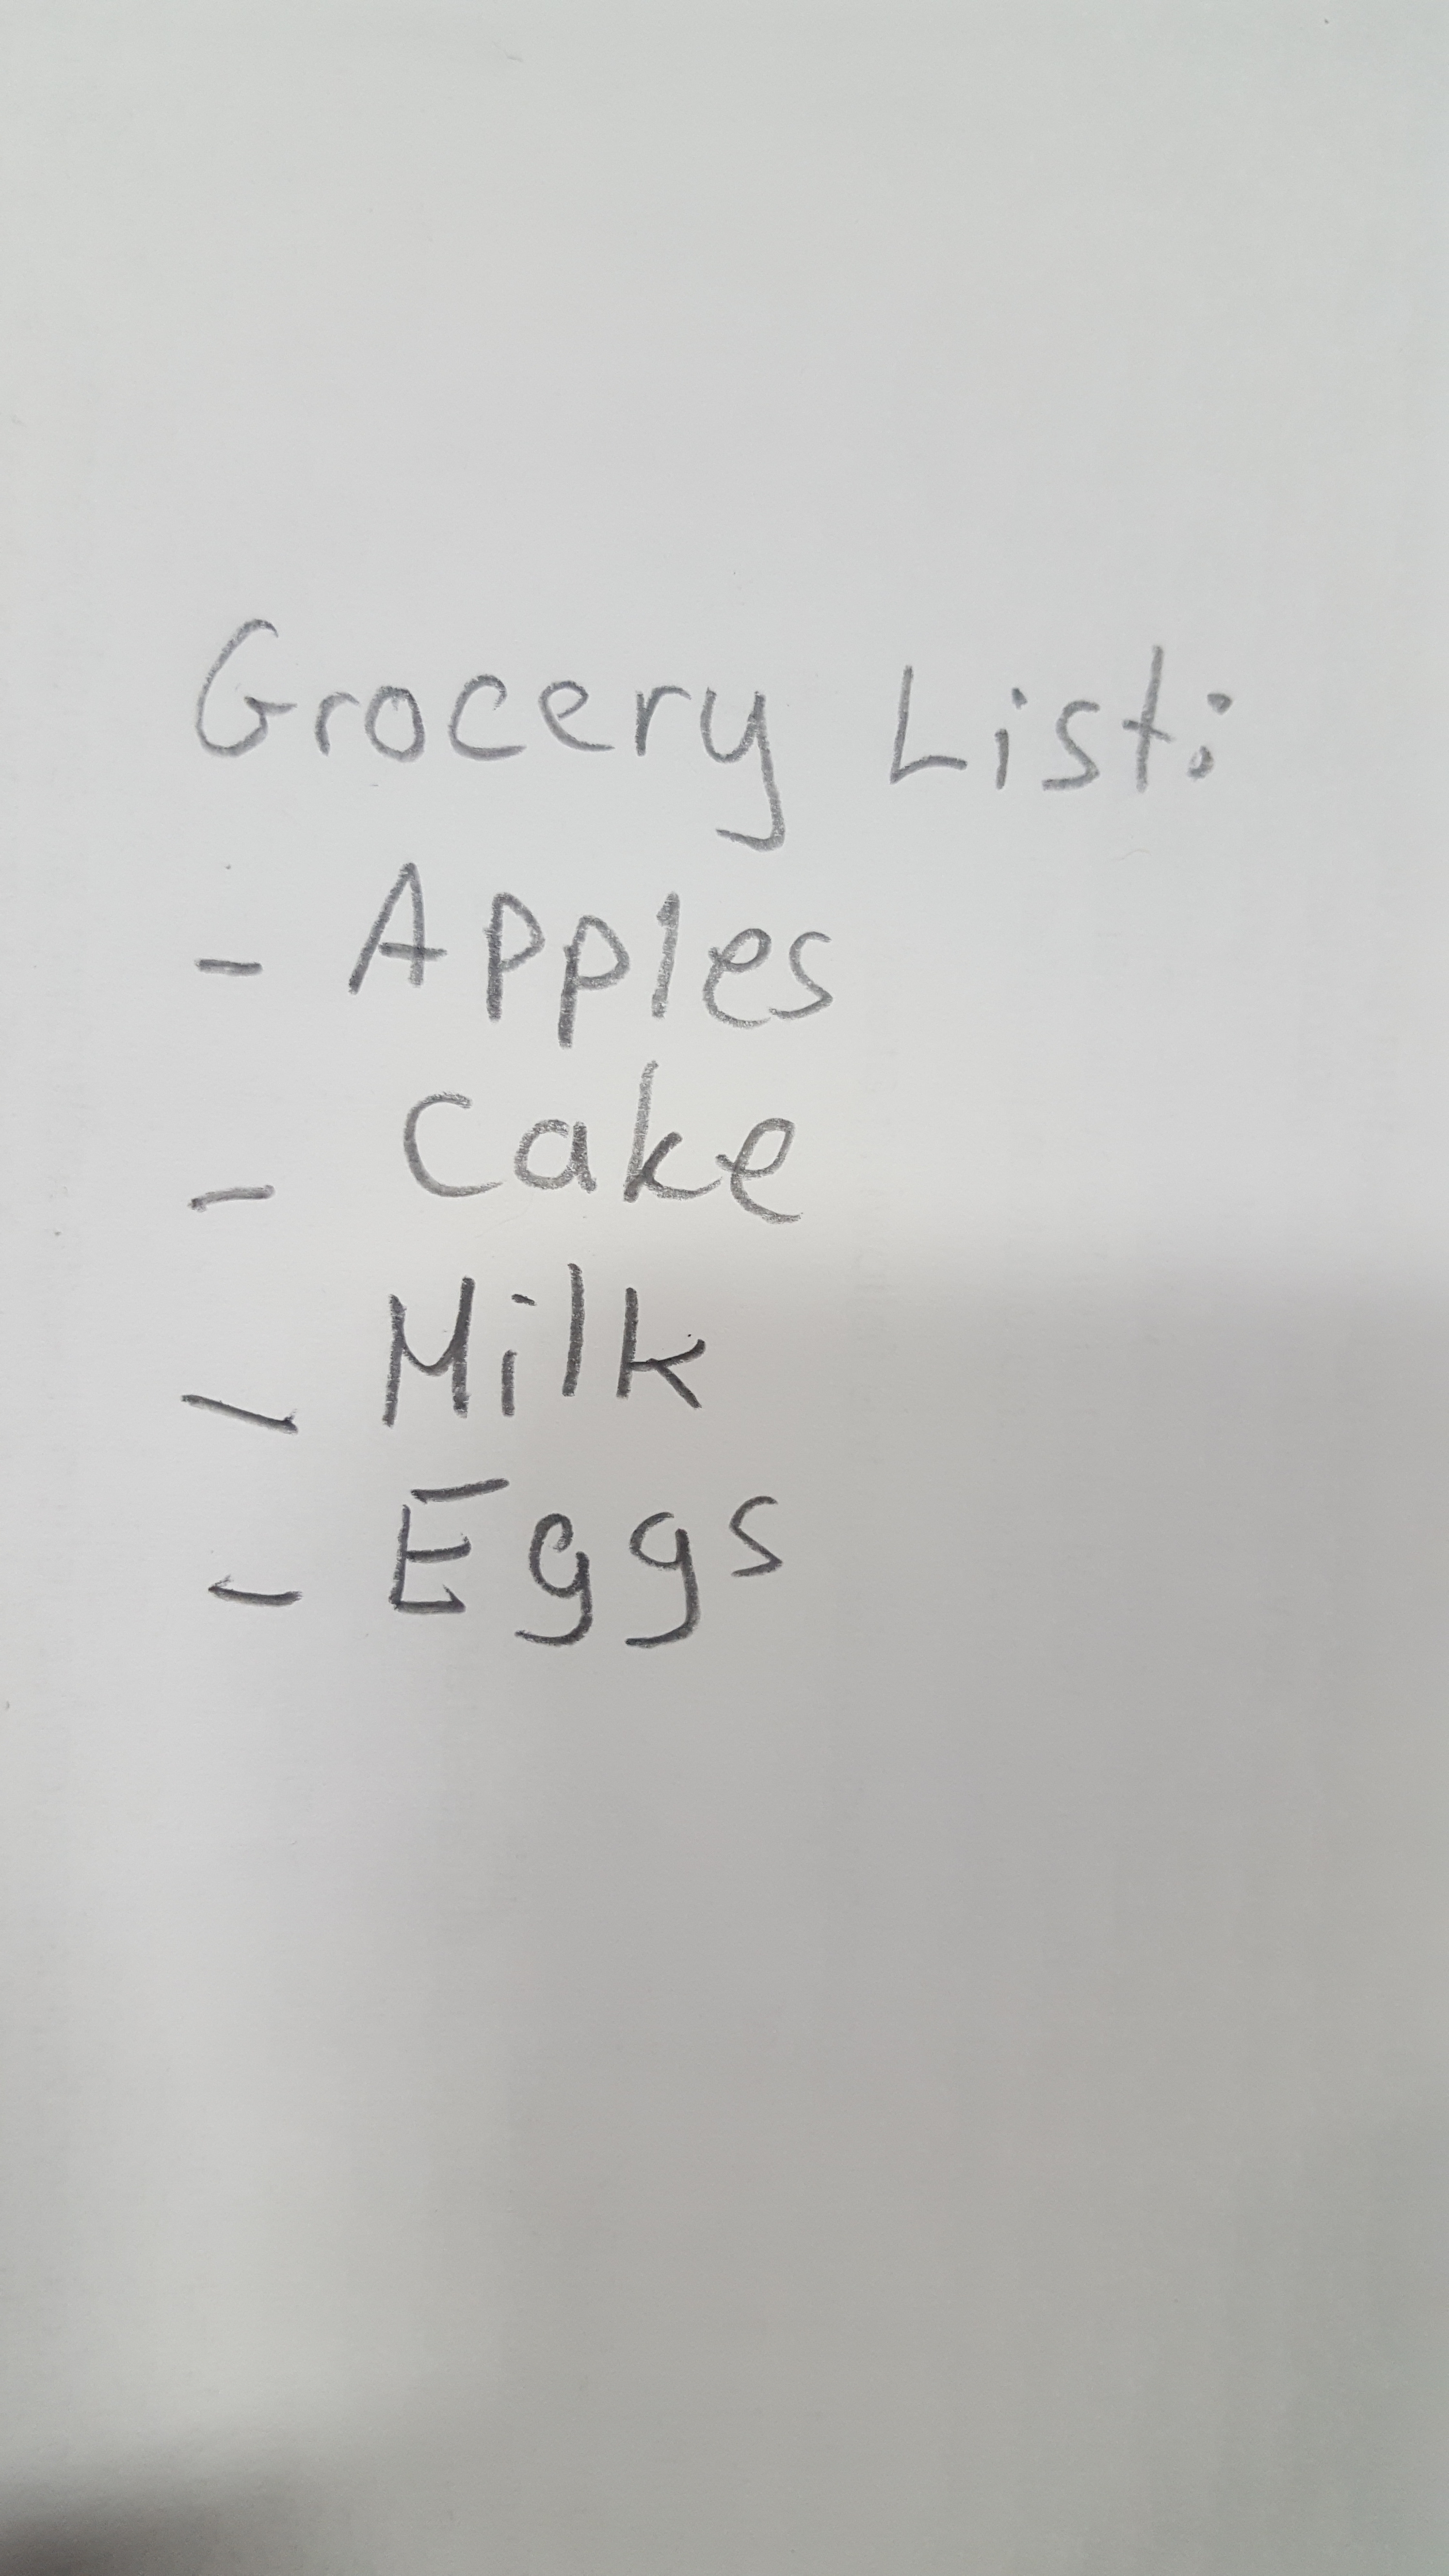 Grocery List:
- Apples
- Cake
- Milk
- Eggs